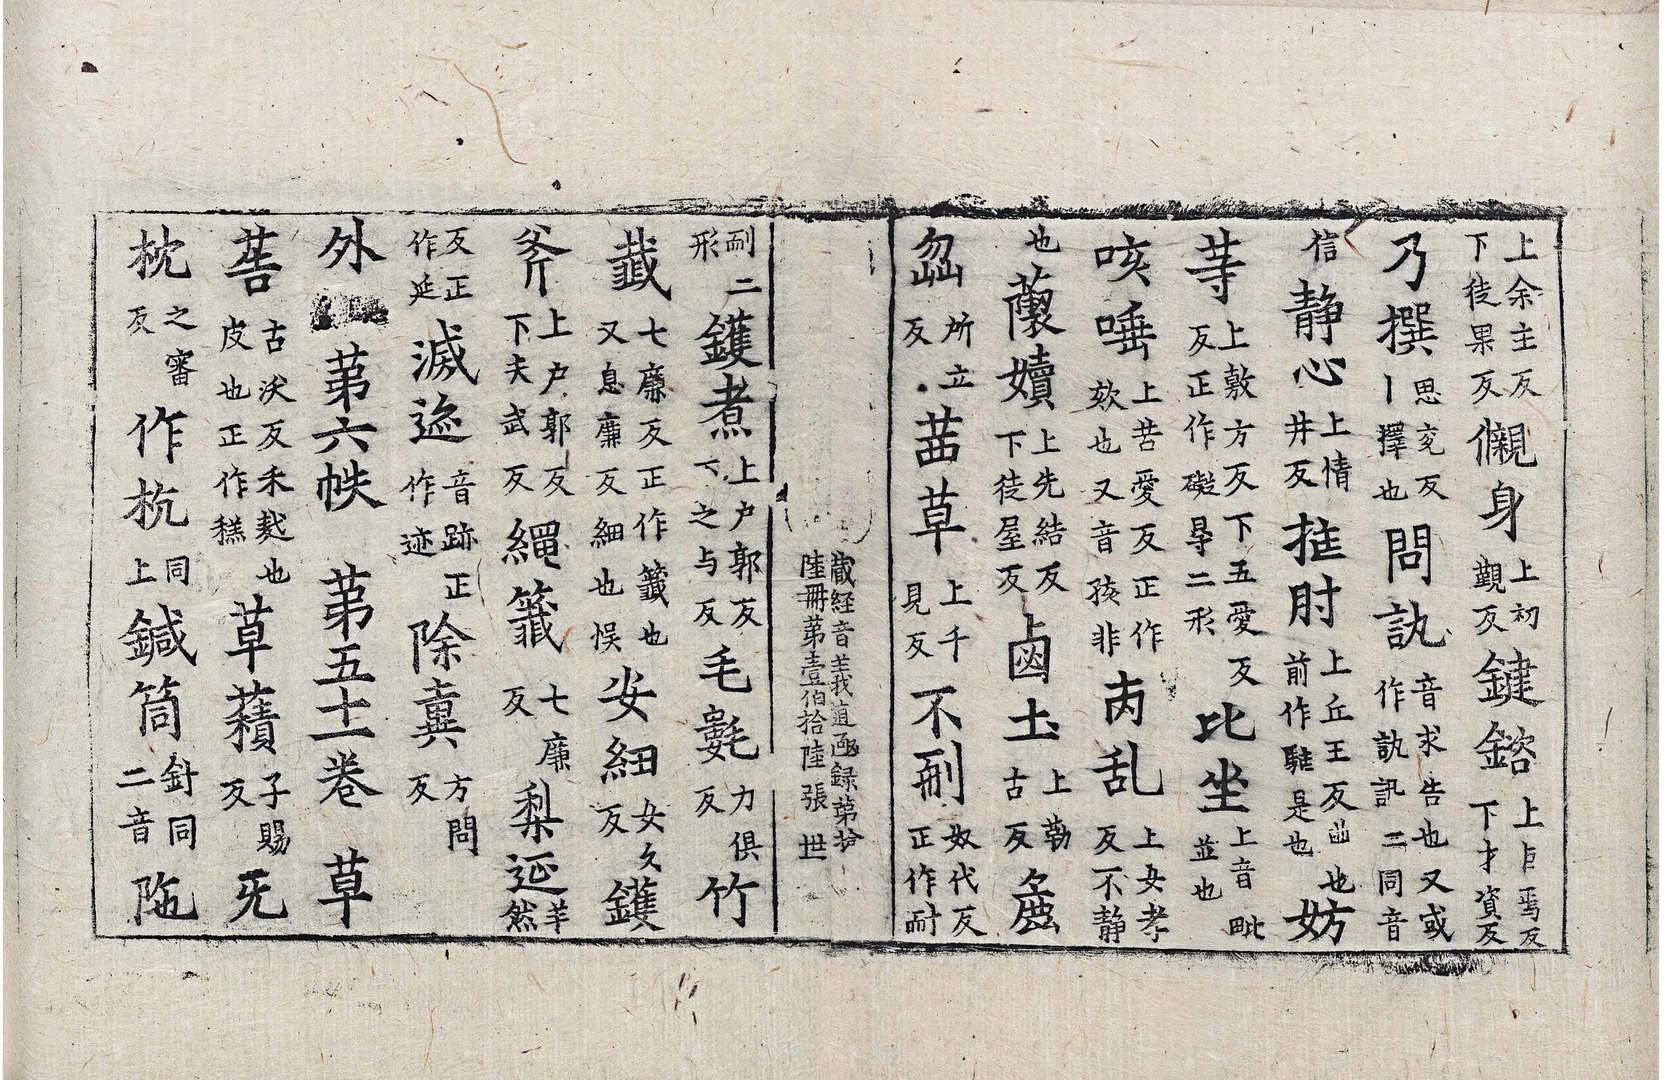 上余主反下徒果反儭身上初覲反鍵鎔上巨焉反下才資反
乃撰思兖反丨擇也問訙音求告也又或作訙訊二同音
信静心上情井反肘上丘王反曲也前作是也妨
上敷方反下五愛反正作礙㝵二形比坐上音毗並也
咳唾上苦愛反正作欬也又音孩非乱上女孝反不静
也嬻上先結反下徒屋反鹵土上勒古反麁
所立反茜草上千見反不奴代反正作耐
藏経音義随函録第拾
陸冊第壹伯拾陸張 世
耏二形鑊煮上户郭反下之与反毛氀力俱反竹
七廉反正作籤也又息廉反細也悮安紐女久反鑊
斧上户郭反下夫武反繩籖七廉反梨延羊然
反正作延滅音跡正作迹除糞方問反
外 第六帙 第五十一卷 草
古沃反禾也皮也正作草子賜反死
枕之審反作杭同上鍼筒針同二音陁